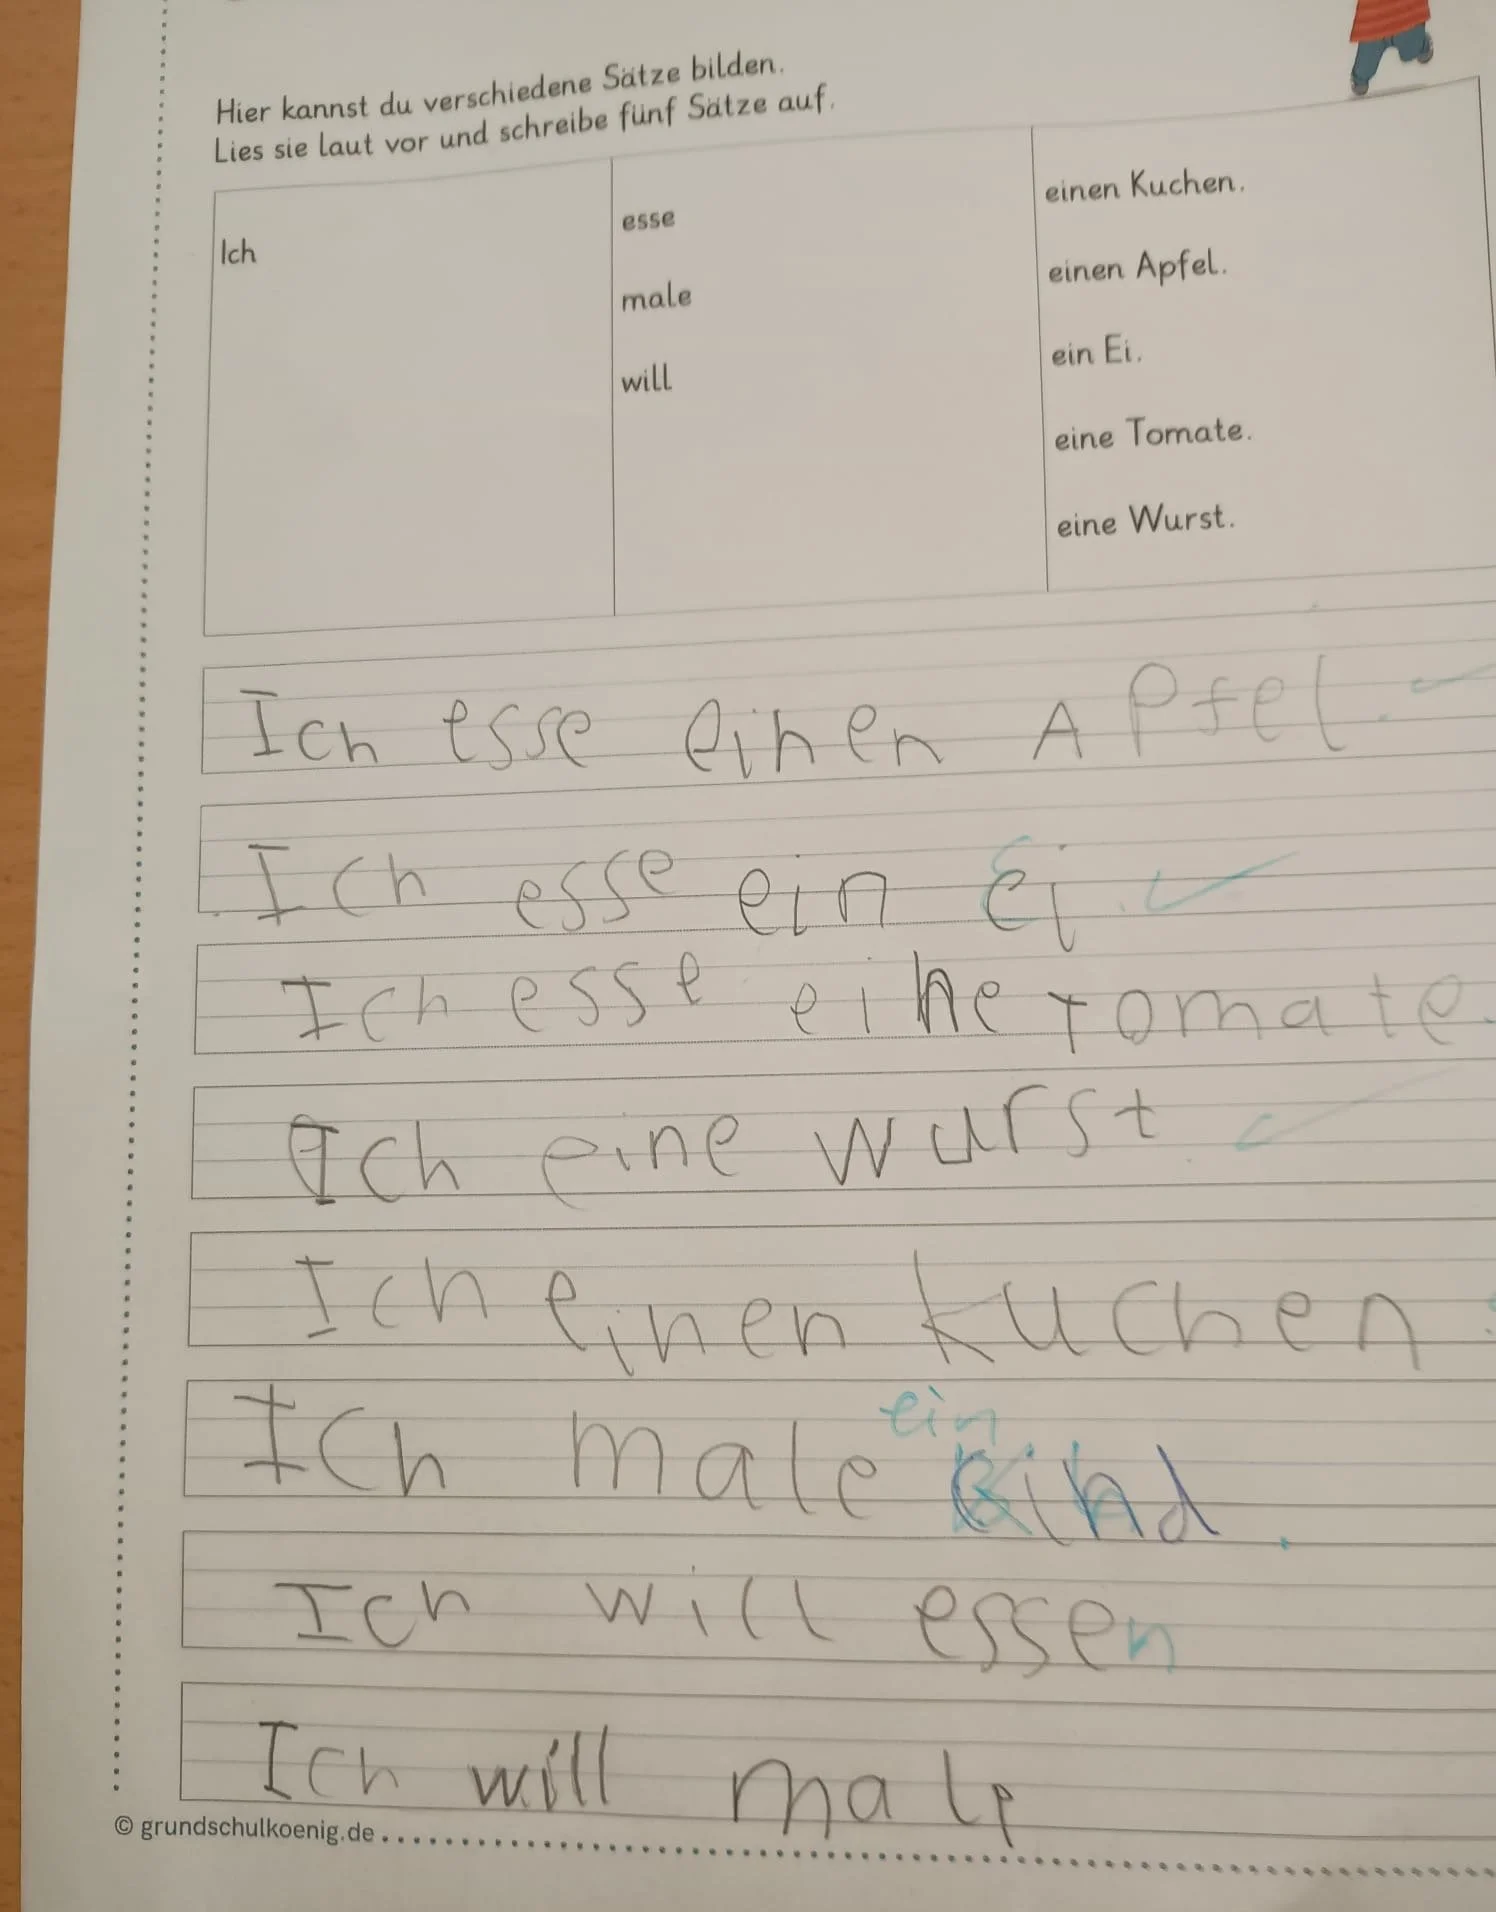 Hier kannst du verschiedene Sätze bilden.
Lies sie laut vor und schreibe fünf Sätze auf.
Ich
esse
male
will
einen Kuchen.
einen Apfel.
ein Ei.
eine Tomate.
eine Wurst.
Ich esse einen Apfel.
Ich esse ein Ei.
Ich esse eine Tomate.
Ich eine Wurst.
Ich einen Kuchen.
Ich male ein Kind.
Ich will essen
Ich will male
© grundschulkoenig.de